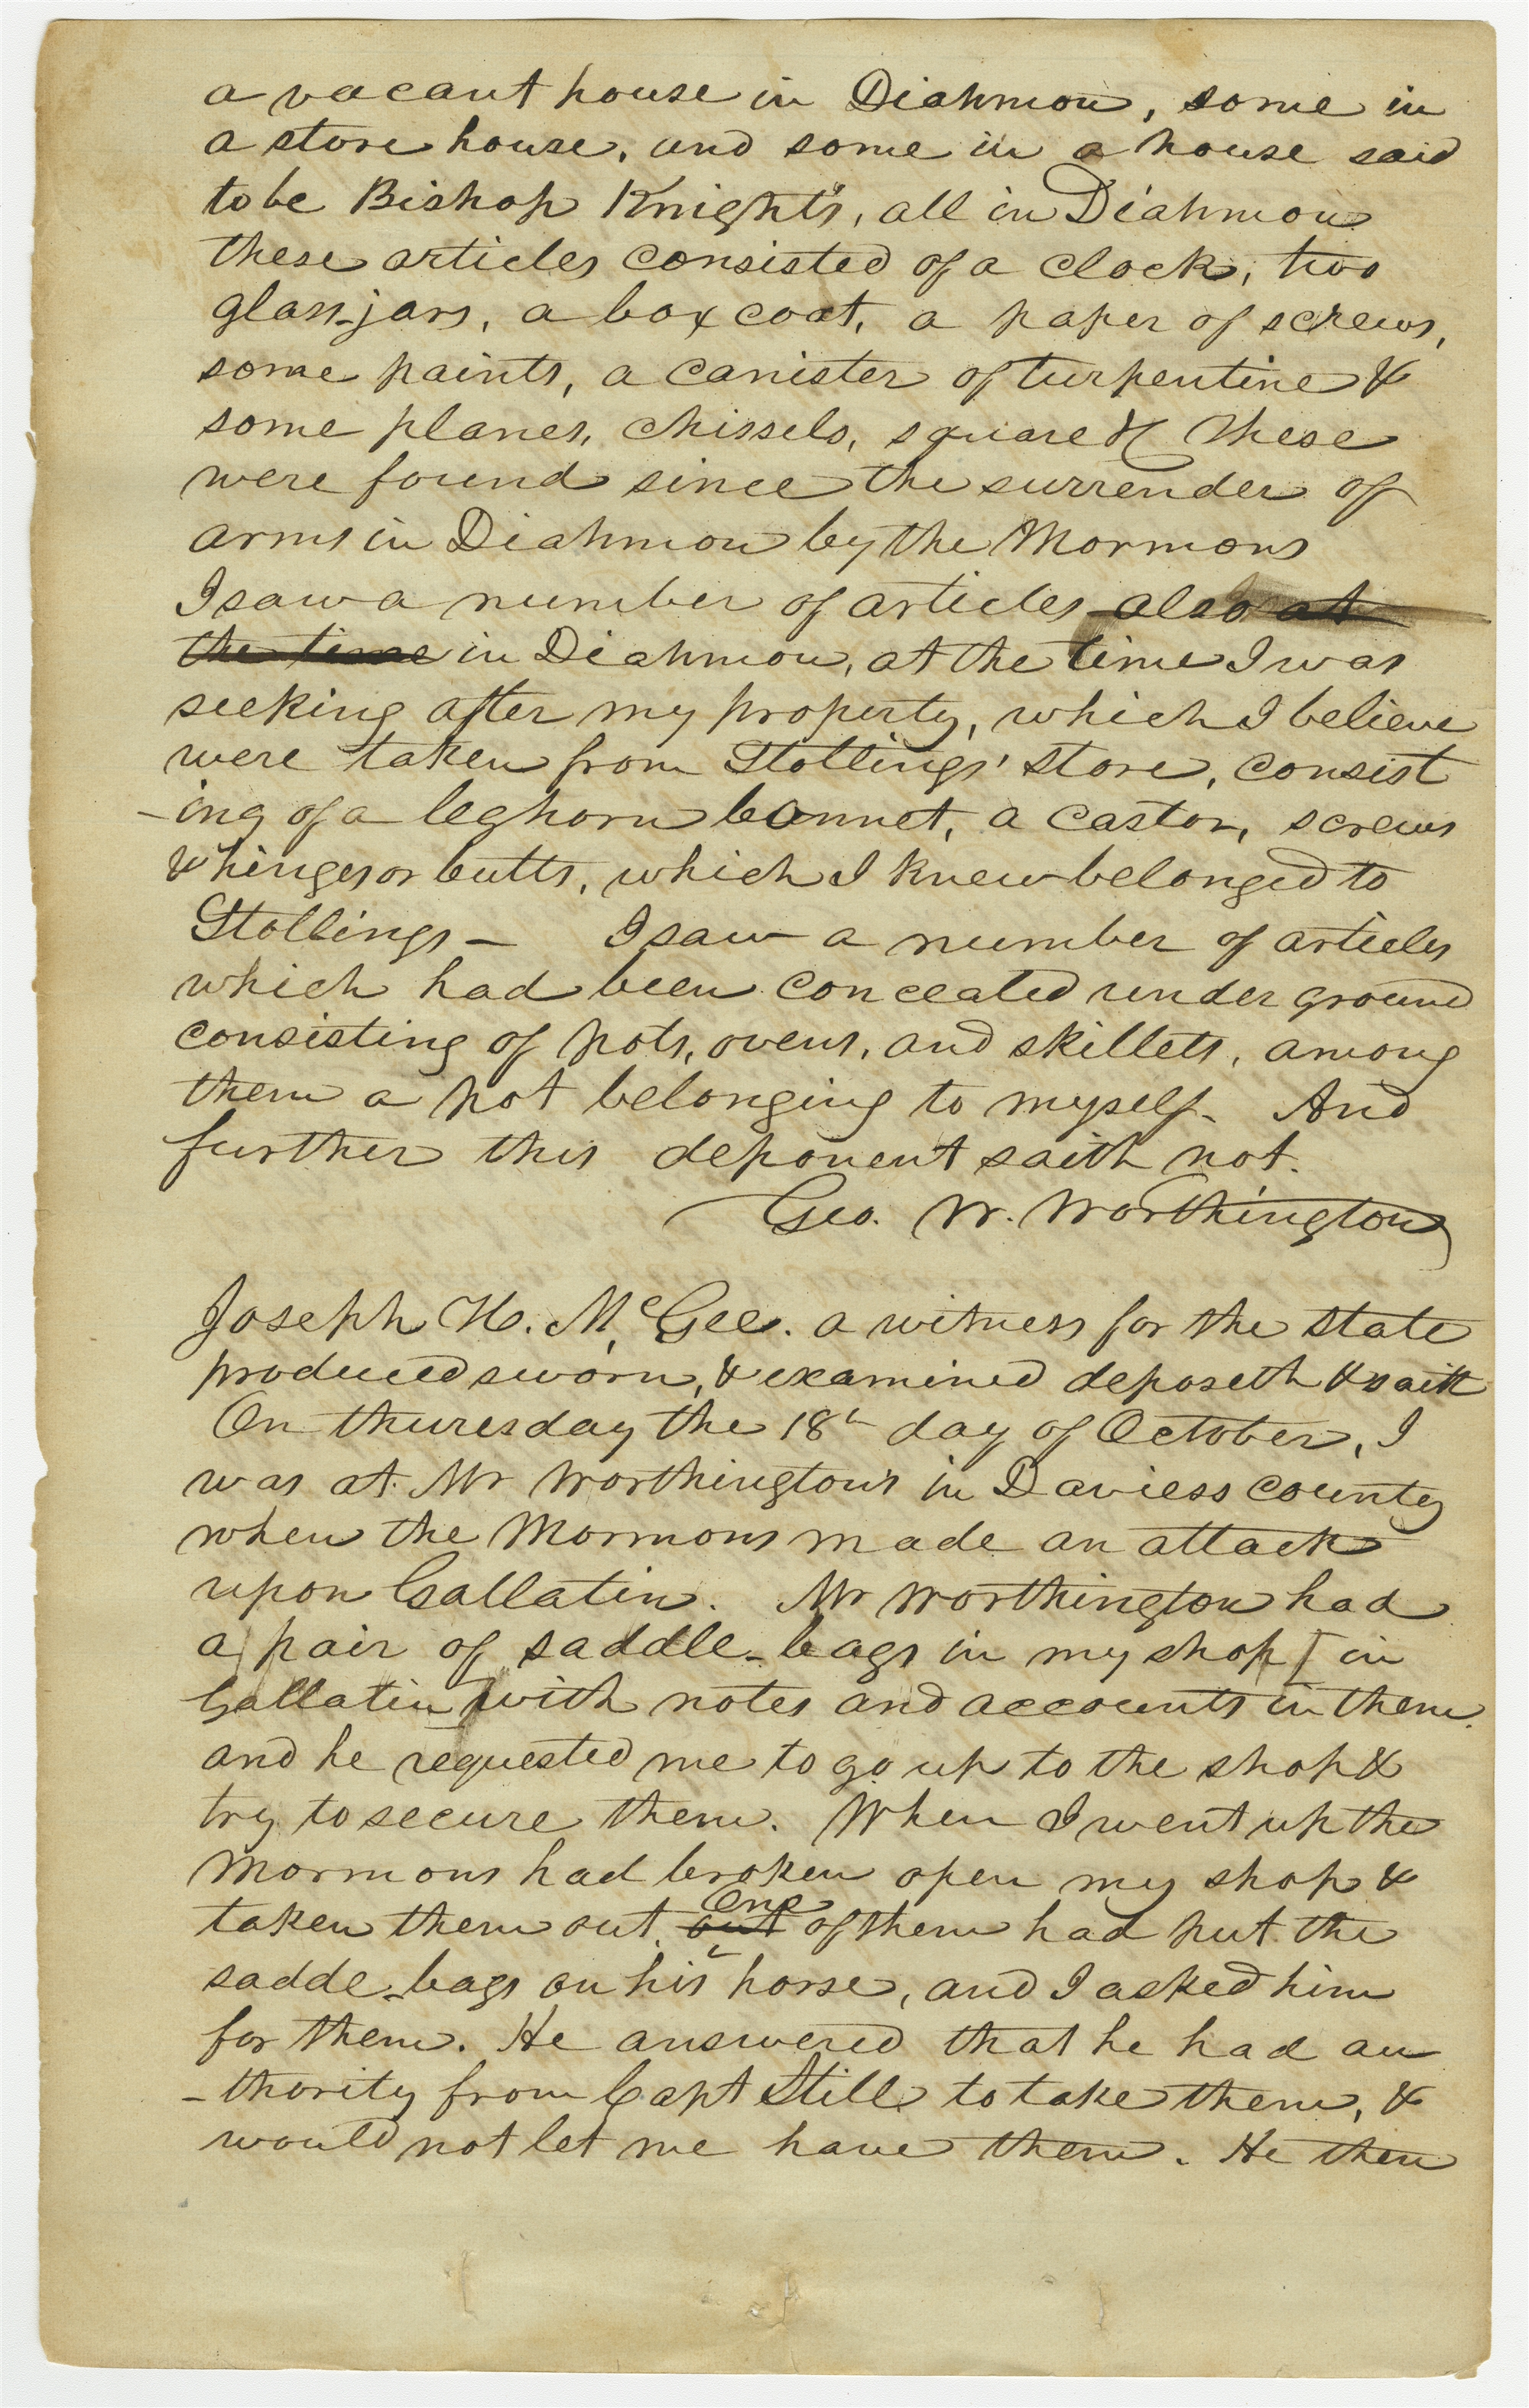 a vacant house in Diahmon, some in
a store house, and some in a house said
to be Bishop Knight's, all in Diahmon
these articles consisted of a clock, two
glass-jars, a box coat, a paper of screws,
some paints, a canister of turpentine &
some planes, chissels, square &c These
were found since the surrender of
arms in Diahmon by the Mormons
I saw a number of articles also at
the time in Diahmon, at the time I was
seeking after my property, which I believe
were taken from Stollings' store, consist
-ing of a leghorn bonnet, a castor, screws
& hinges or butts, which I knew belonged to
Stollings - I saw a number of articles
which had been concealed under ground
consisting of pots, ovens, and skillets, among
them a pot belonging to myself- And
further this deponent saith not.
Geo. W. Worthington
Joseph H. McGee. a witness for the state
produced sworn, & examined deposeth & saith
On thuresday the 18th day of October, I
was at Mr Worthington's in Daviess county
when the Mormons made an attack
upon Gallatin. Mr Worthington had
a pair of saddle-bags in my shop [in
Gallatin] with notes and accounts in them.
and he requested me to go up to the shop &
try to secure them. When I went up the
Mormons had broken open my shop &
taken them out. out One of them had put the
sadde-bags on his horse, and I asked him
for them. He answered that he had au
-thority from Capt Still to take them, &
would not let me have them. He then